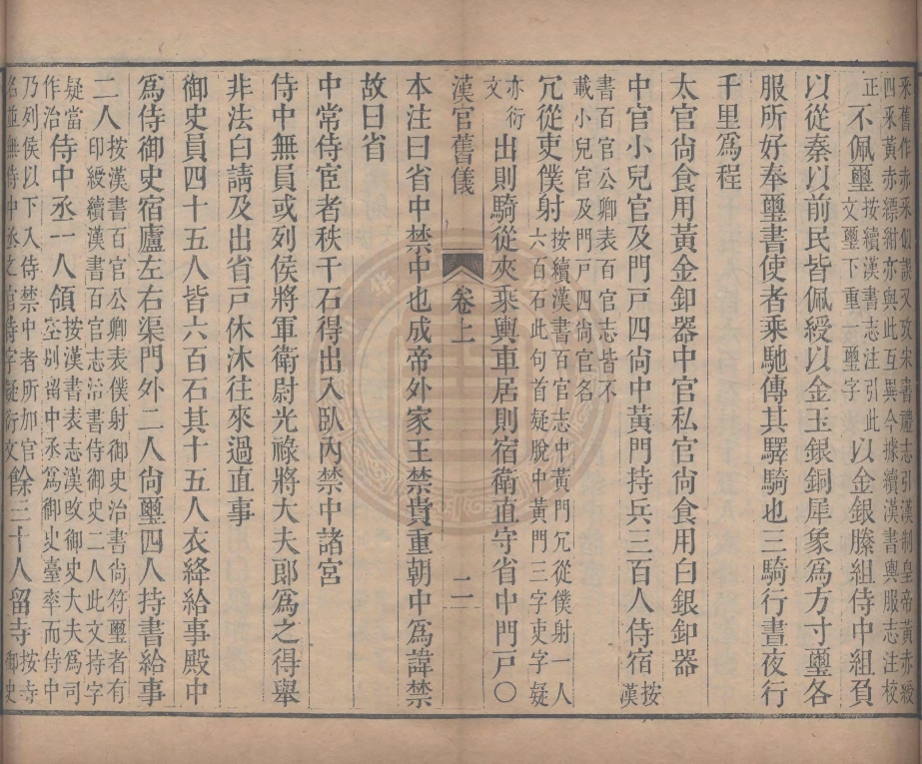 采舊作赤采似誤又攷宋書禮志引漢制皇帝黃赤綬
四采黃赤縹紺亦與此互異今據續漢書輿服志注校
正不佩璽按續漢書志注引此文璽下重一璽字以金銀縢組侍中組負
以從秦以前民皆佩綬以金玉銀銅犀象爲方寸璽各
服所好奉璽書使者乘馳傳其驛騎也三騎行晝夜行
千里爲程
太官尙食用黃金釦器中官私官尙食用白銀釦器
中官小兒官及門戸四尙中黃門持兵三百人侍宿按漢
書百官公卿表百官志皆不
載小兒官及門戸四尙官名
冗從吏僕射按續漢書百官志中黃門冗從僕射一人六百石此句首疑脫中黃門三字吏字疑
亦衍文出則騎從夾乘輿車居則宿衛直守省中門戸〇
漢官舊儀 卷上 二
本注曰省中禁中也成帝外家王禁貴重朝中爲諱禁
故曰省
中常侍宦者秩千石得出入臥內禁中諸宮
侍中無員或列侯將軍衛尉光祿將大夫郞爲之得舉
非法白請及出省戸休沐往來過直事
御史員四十五人皆六百石其十五人衣絳給事殿中
爲侍御史宿廬左右渠門外二人尙璽四人持書給事
二人按漢書百官公卿表僕射御史治書尙符璽者有印綬續漢書百官志治書侍御史二人此文持字
疑當作治侍中丞一人領按漢書表志漢改御史大夫爲司空別留中丞爲御史臺率而侍中
乃列侯以下入侍禁中者所加官名並無侍中丞之官侍字疑衍文餘三十人留寺按寺御史